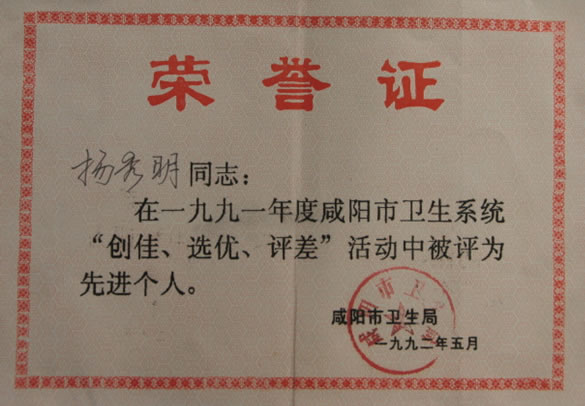 荣誉证
杨秀明同志：
在一九九一年度咸阳市卫生系统
“创佳、选优、评差”活动中被评为
先进个人。
咸阳市卫生局
一九九二年五月